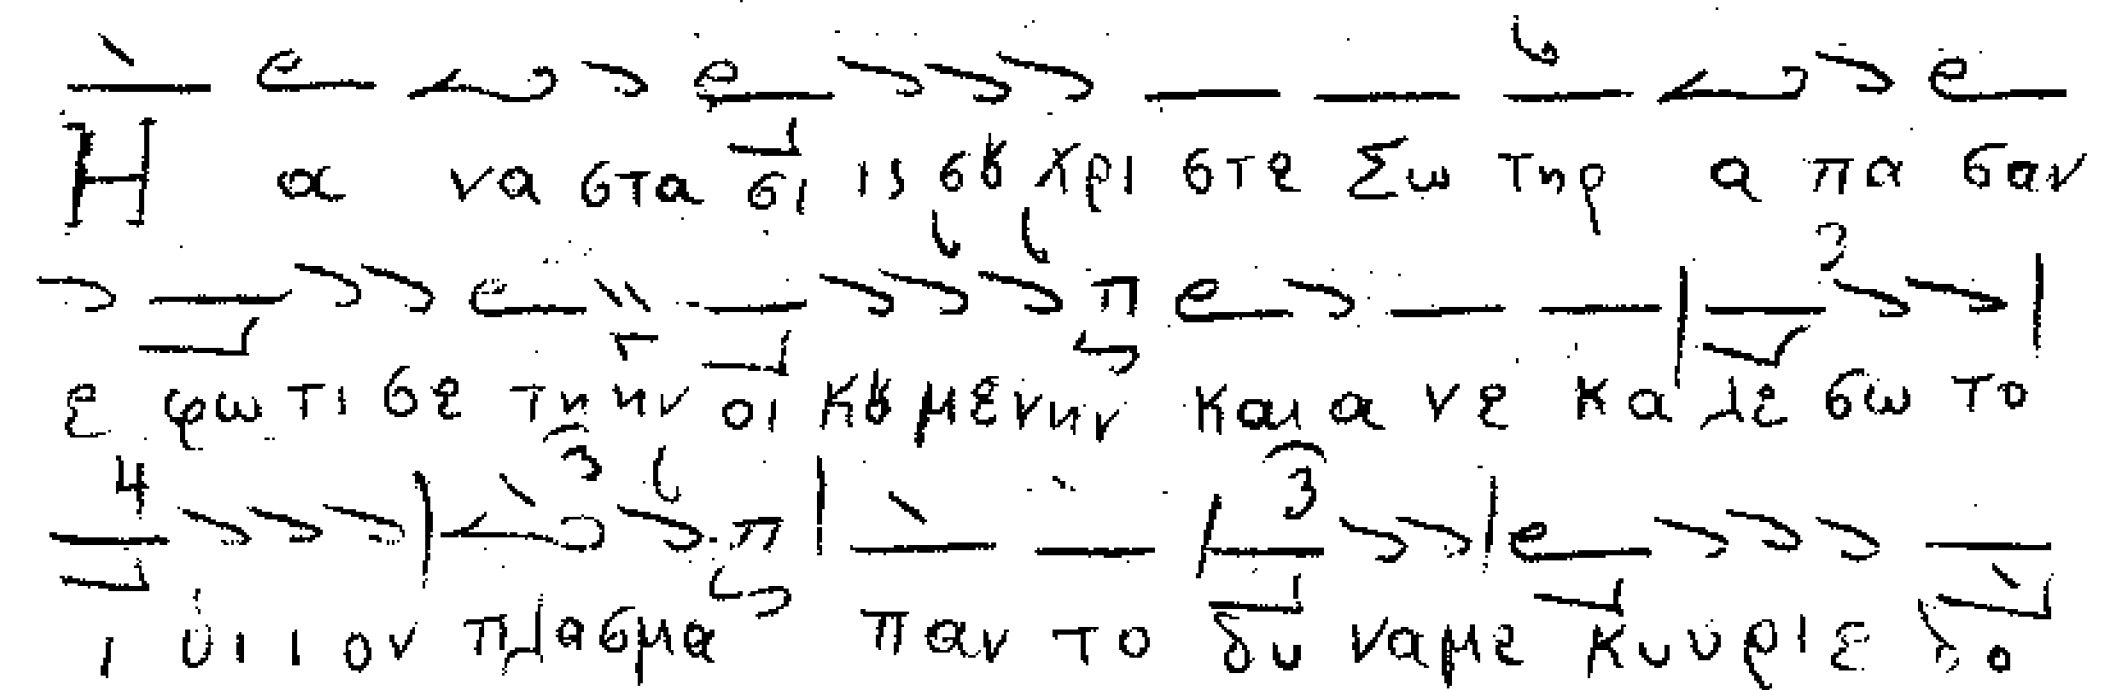 Η α να στα σι ις σȣ Χρι στε Σω τηρ α πα σαν
ε φω τι σε τη ην οι κȣ με νην και α νε κα λε σω το
ι δι ι ον πλασμα παν το δυ ναμε Κυ υ ρι ε δο